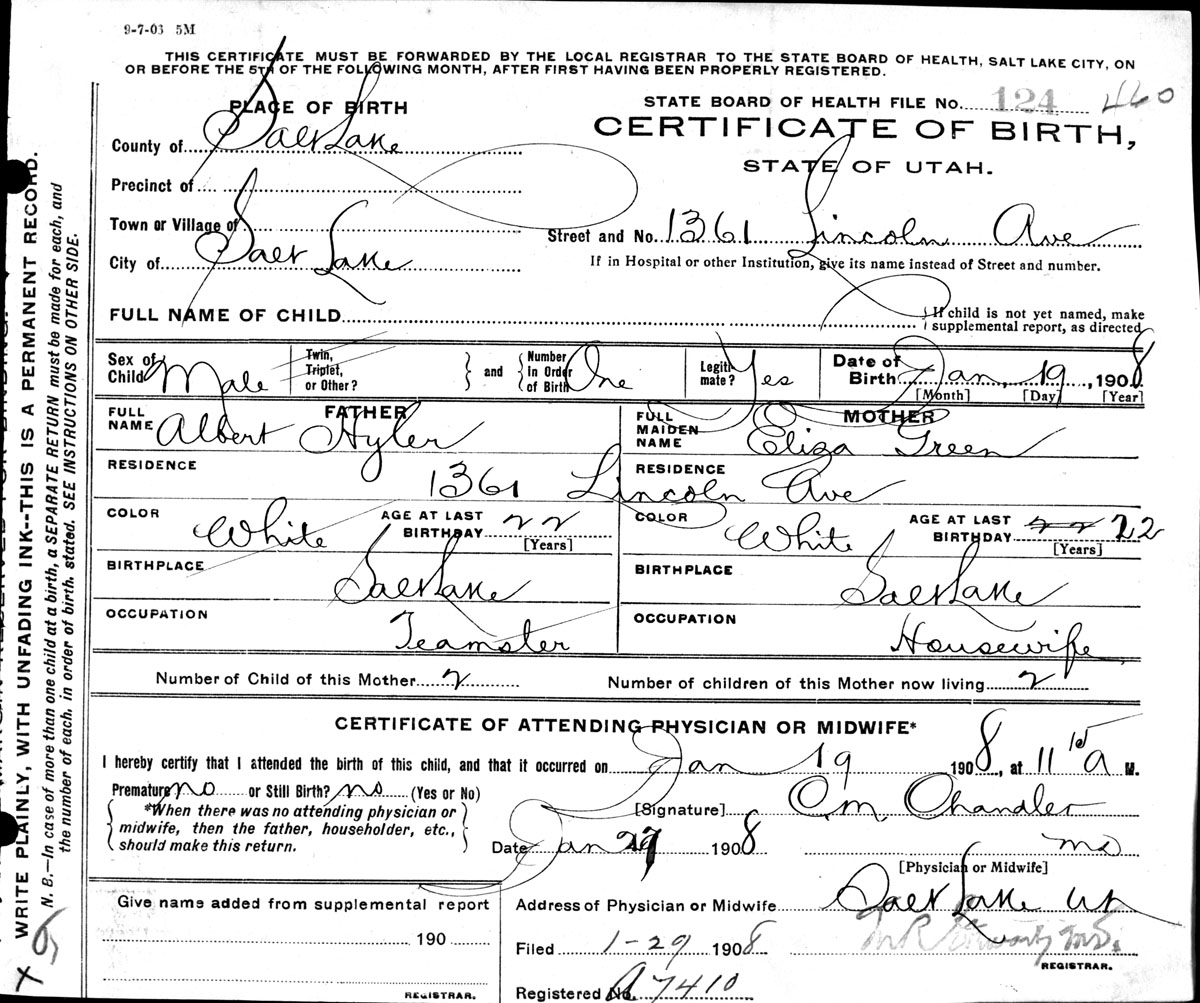 9-7-03 5M
THIS CERTIFICATE MUST BE FORWARDED BY THE LOCAL REGISTRAR TO THE STATE BOARD OF HEALTH, SALT LAKE CITY, ON
OR BEFORE THE 5TH OF THE FOLLOWING MONTH, AFTER FIRST HAVING BEEN PROPERLY REGISTERED.
STATE BOARD OF HEALTH FILE No. 124 460
PLACE OF BIRTH
CERTIFICATE OF BIRTH,
STATE OF UTAH.
County of Salt Lake
Precinct of
Town or Village of
Street and No. 1361 Lincoln Ave
City of Salt Lake
If in Hospital or other Institution, give its name instead of Street and number.
FULL NAME OF CHILD
If child is not yet named, make
supplemental report, as directed
Sex of Child Male
Twin, Triplet, or Other? and Number In Order of Birth One
Legitimate? Yes
Date of Birth Jan, 19, 1908
[Month] [Day] [Year]
FATHER
FULL NAME Albert Hyler
MOTHER
FULL MAIDEN NAME Eliza Green
RESIDENCE RESIDENCE
1361 Lincoln Ave
COLOR White AGE AT LAST BIRTHDAY 22 [Years]
COLOR White AGE AT LAST BIRTHDAY 22 22 [Years]
BIRTHPLACE Salt Lake
BIRTHPLACE Salt Lake
OCCUPATION Teamster
OCCUPATION Housewife
Number of Child of this Mother 2 Number of children of this Mother now living 2
CERTIFICATE OF ATTENDING PHYSICIAN OR MIDWIFE*
I hereby certify that I attended the birth of this child, and that it occurred on Jan 19 1908, at 11 A M.
Premature no or Still Birth? no (Yes or No)
*When there was no attending physician or
midwife, then the father, householder, etc.,
should make this return.
[Signature] C M Chandler
Date Jan 27 1908 MD
[Physician or Midwife]
Give name added from supplemental report
190
REGISTRAR.
Address of Physician or Midwife Salt Lake Ut
Filed 1-29 1908
REGISTRAR.
Registered No. A7410
WRITE PLAINLY, WITH UNFADING INK--THIS IS A PERMANENT RECORD.
N. B.—In case of more than one child at a birth, a SEPARATE RETURN must be made for each, and
the number of each, in order of birth, stated. SEE INSTRUCTIONS ON OTHER SIDE.